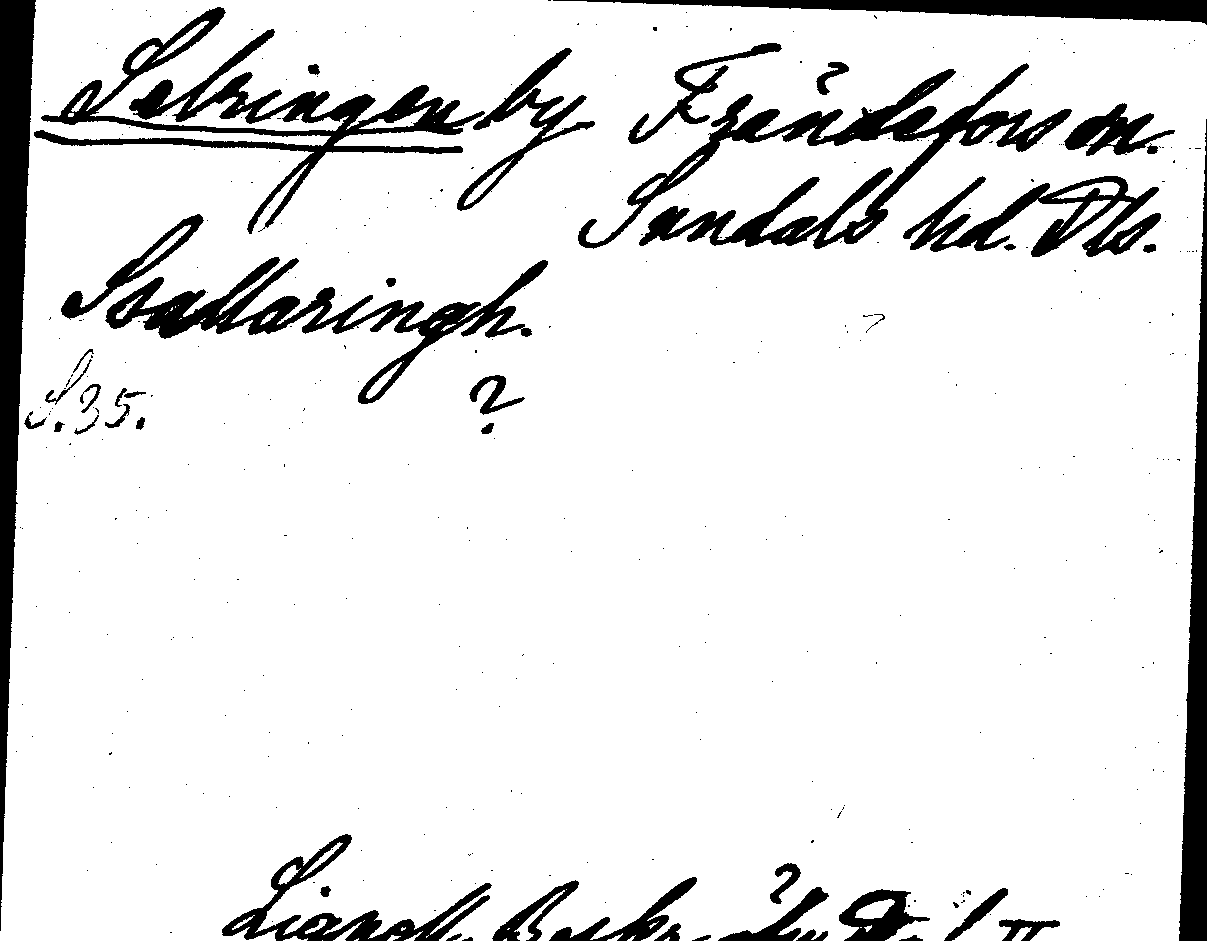 Selringen by Frändefors sn.
Sundals hd. Dls.
Svallaringh.
S.35. ?
Lignell, Beskr. öfv. Dal II